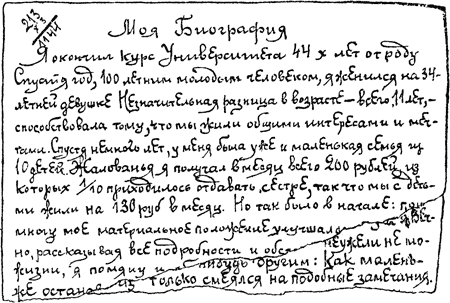 Моя Биография
Я окончил курс Университета 44 х лет от роду
Спустя год, 100 летним молодым человеком, я женился на 34-
летней девушке Незначительная разница в возрасте – всего 11 лет, –
способствовала тому, что мы жили общими интересами и меч-
тами. Спустя немного лет, у меня была уже и маленькая семья из
10 детей. Жалованья я получал в месяц всего 200 рублей, из
которых 1/10 приходилось отдавать сестре, так что мы с деть-
ми жили на 130 руб в месяц. Но так было в начале:
многу мое материальное положение улучшало
но, рассказывая все подробности и неужели не мо-
жизни, я помяну и нибудь другим: Как малень-
же останов только смеялся на подобные замечания.